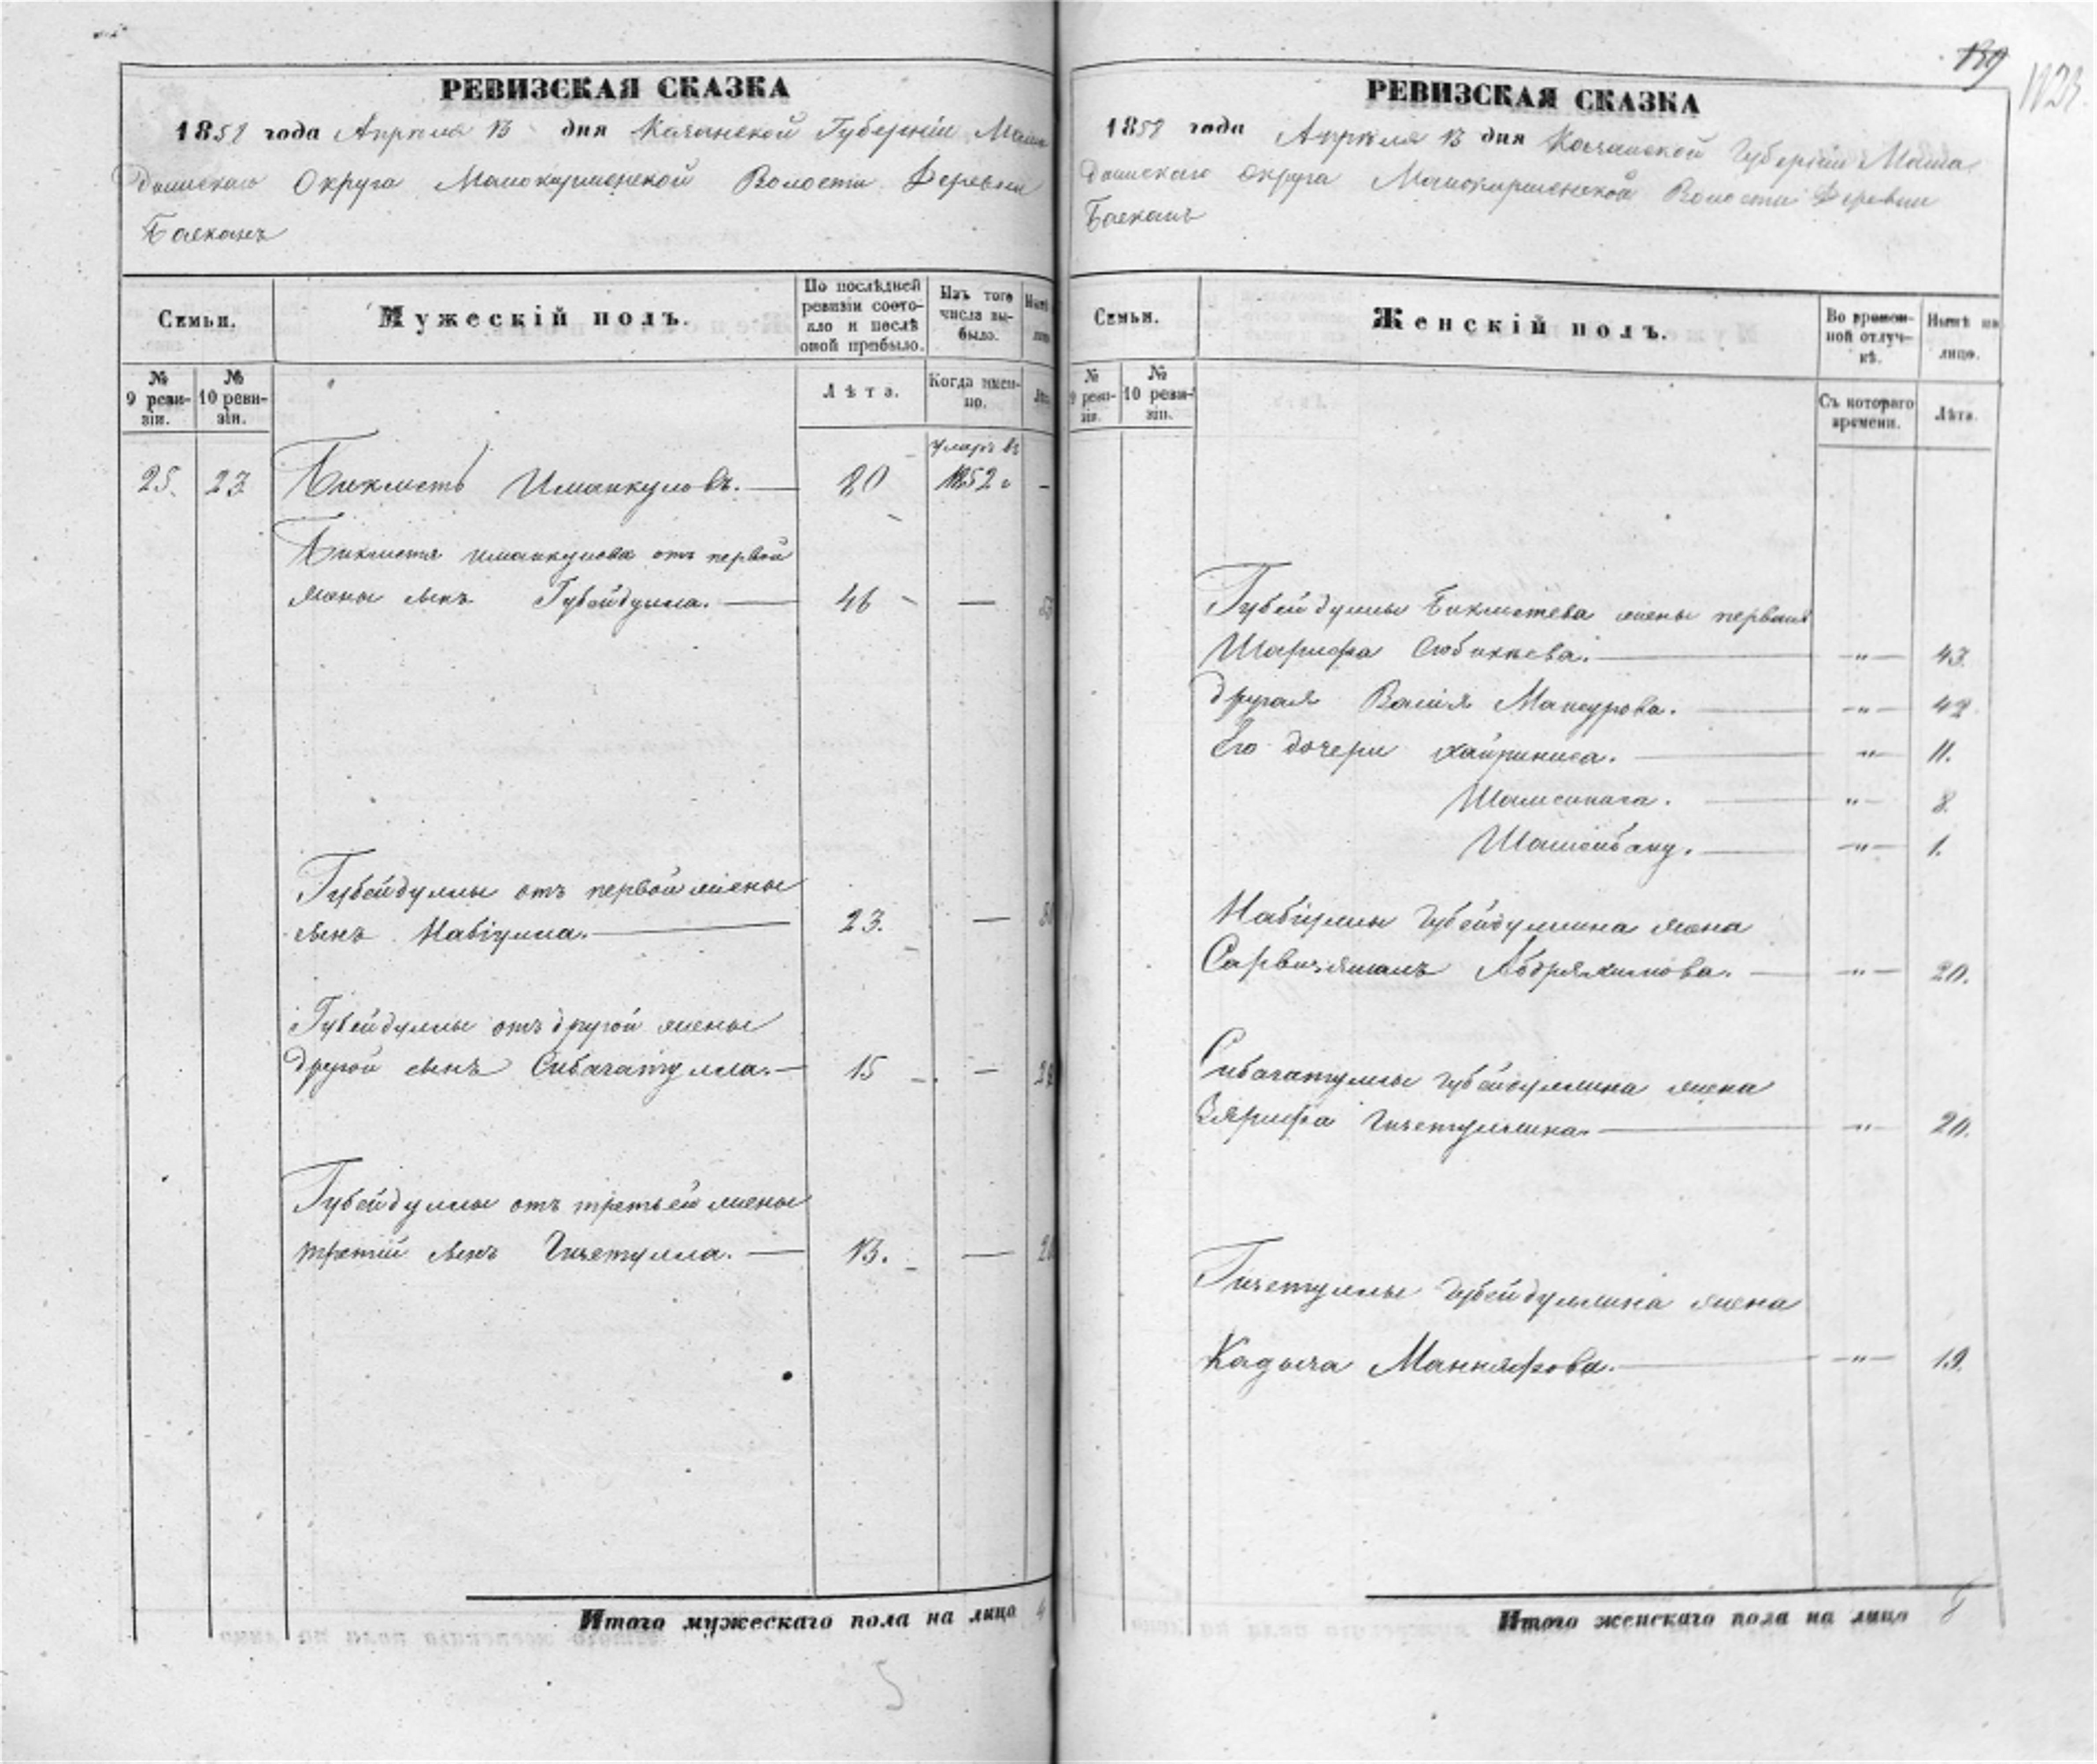 РЕВИЗСКАЯ СКАЗКА
1858 года Апреля 13 дня Казанской Губерніи Мама
дышскаго Округа Малокирменской Волости Деревни
Баеканъ
Семьи.
Мужескій полъ.
По послѣдней
ревизіи состо-
яло и послѣ
оной прибыло.
Изъ того
числа вы-
было.
№
9 реви-
зіи.
№
10 реви-
зіи.
Лѣта.
Когда имен-
но.
умеръ въ
25. 23 Бикметь Иманкуловъ. 80 1852 г
Бикметя Иманкулова отъ первой
жены сынъ Губейдулла. 46
Губейдуллы отъ первой жены
сынъ Набіулла. 23.
Губейдуллы отъ другой жены
другой сынъ Сибагатулла. 15
Губейдуллы отъ третьей жены
третій сынъ Гизетулла. 13.
Итого мужескаго пола на лицо 4
5
139
РЕВИЗСКАЯ СКАЗКА
1858 года Апреля 13 дня Казанской Губерніи Мама
дышскаго Округа Малокирменской Волости Деревни
Баекань
Семьи.
Женскій полъ.
Во времен-
ной отлуч-
кѣ.
Нынѣ на
лицо.
№
9 реви-
зіи.
№
10 реви-
зіи.
Съ котораго
времени.
Лѣта.
Губейдуллы Бикметева жены первая
Шарифа Сюбиккева. " 43.
другая Валія Мансурова. " 42
Его дочери Хайриниса. " 11.
Шамсиниса. " 8.
Шамсибану. " 1.
Набіуллы Губейдуллина жена
Сарвизямалъ Абдряхимова. " 20.
Сибагатуллы Губейдуллина жена
Зярифа Гизетуллина. " 20.
Гизетуллы Губейдуллина жена
Кадыча Манняфова. " 19.
Итого женскаго пола на лицо 8